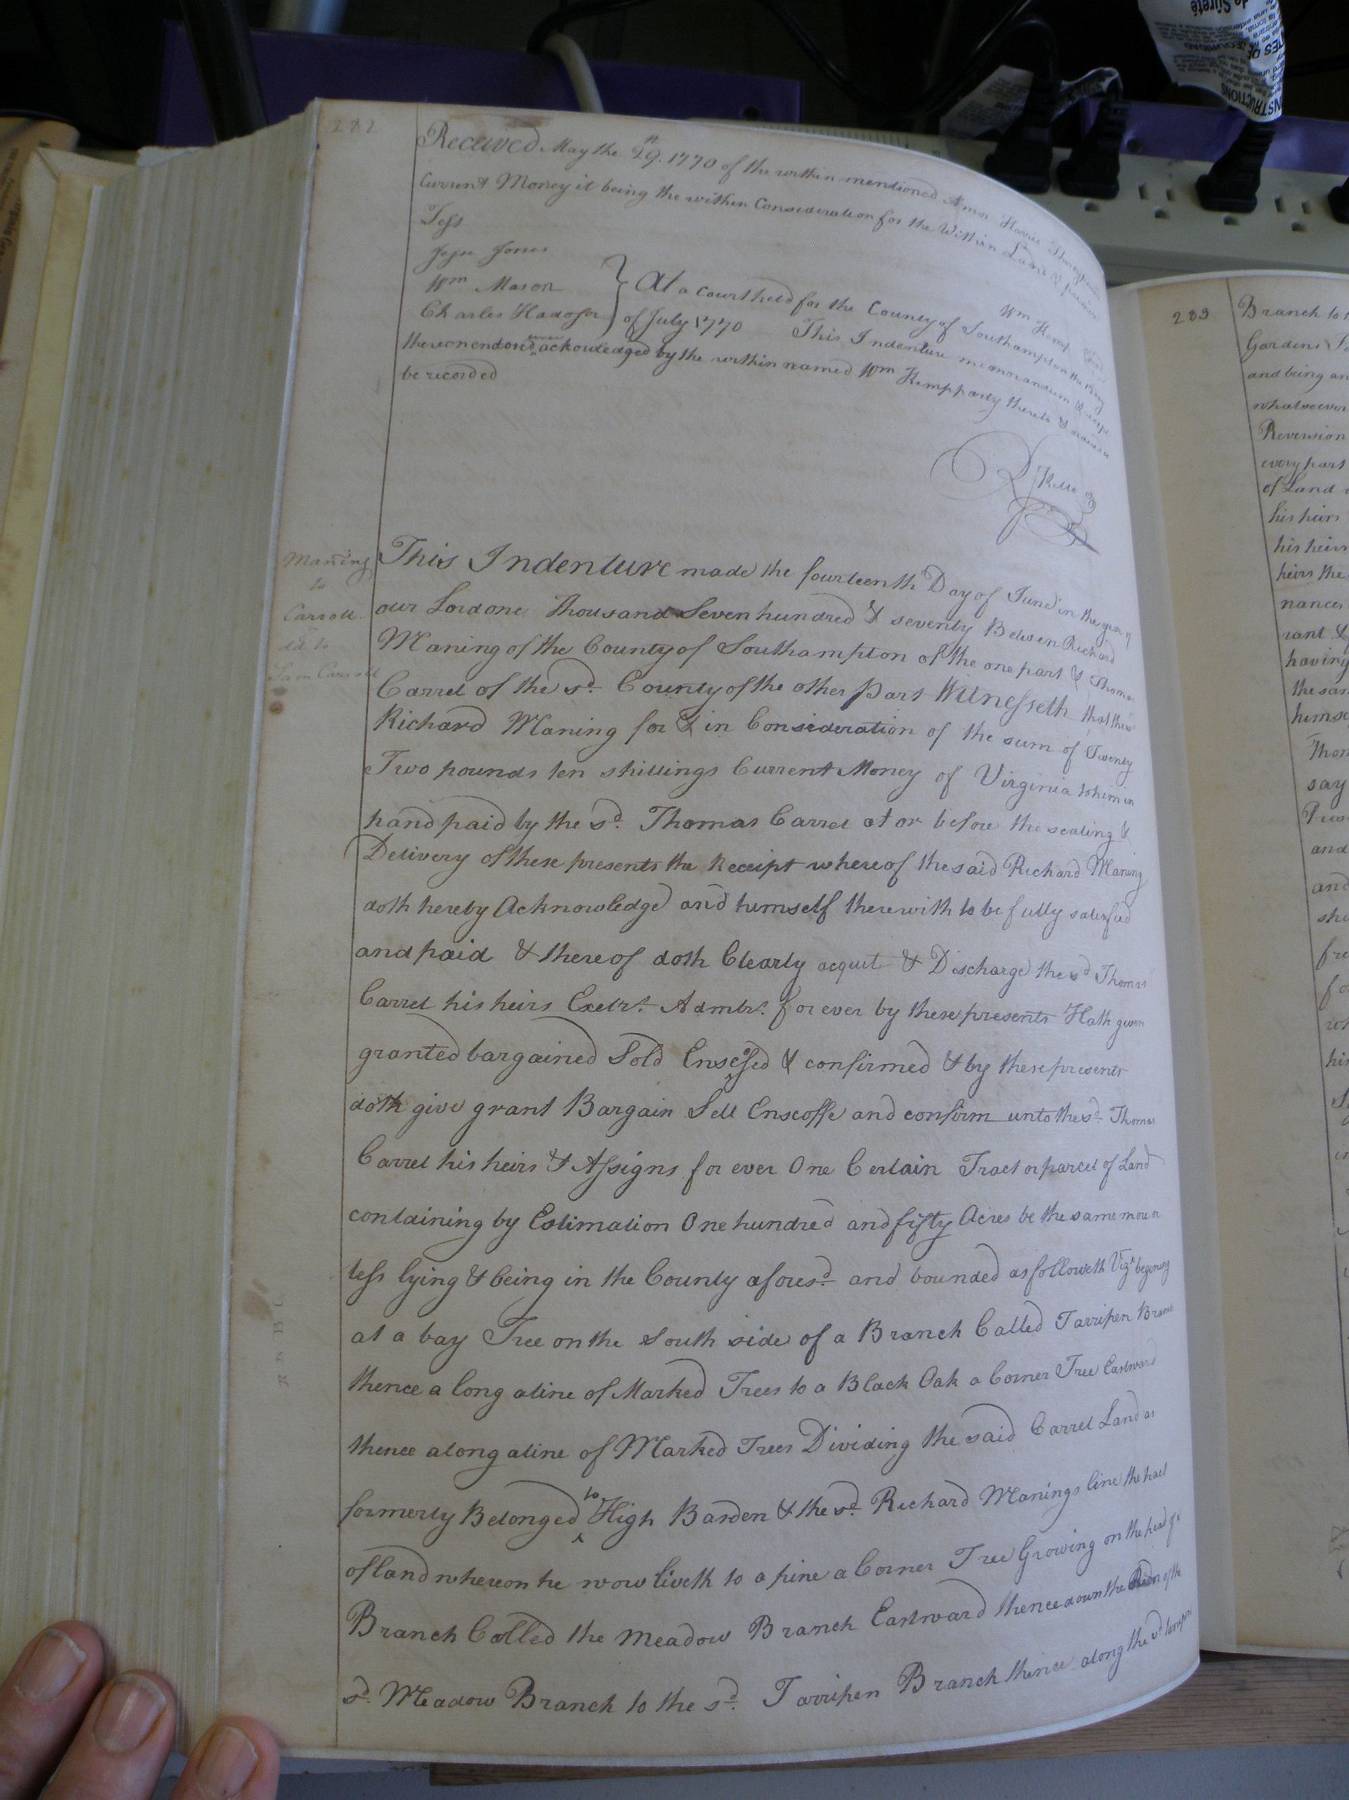 282
Received May the 29th. 1770 of the within mentioned Amos Harris
Current Money it being the within Consideration for the Within Land &
Test
Jesse Jones
Wm Mason
Charles Hadosn
Wm Kemp
At a Court held for the County of Southampton the
of July 1770 This Indenture memorandum &
thereon endorsd were ackowledged by the within named Wm Kemp party thereto &
be recorded
Maning
to
Carroll
dd to
Sam Carroll
This Indenture made the fourteenth Day of June in the year of
our Lord one Thousand Seven hundred & seventy Between Richard
Maning of the County of Southampton of the one part & Thomas
Carrel of the sd. County of the other part Witnesseth that the
Richard Maning for & in Consideration of the sum of Twenty
Two pounds ten shillings Current Money of Virginia to him in
hand paid by the sd. Thomas Carrel at or before the sealing &
Delivery of these presents the Receipt whereof the said Richard Maning
doth hereby Acknowledge and himself therewith to be fully satisfied
and paid & thereof doth Clearly acquit & Discharge the sd Thomas
Carrel his heirs Exetrs. Admtrs. for ever by these presents Hath given
granted bargained Sold & confirmed & by these presents
doth give grant Bargain Sell Enscoffe and confirm unto the sd. Thomas
Carrel his heirs & Assigns for ever One Certain Tract or parcel of Land
containing by Estimation One hundred and fifty Acres be the same more or
less lying & being in the County aforesd. and bounded as followeth Vizt begining
at a bay Tree on the South side of a Branch Called Tarripen Branc
thence a long a line of Marked Trees to a Black Oak a Corner Tree Eastward
thence along a line of Marked Trees Dividing the said Carrel Land as
formerly Belonged to High Barden & the sd. Richard Manings line the
of land whereon he now liveth to a pine a Corner Tree Growing on the head of a
Branch Called the Meadow Branch Eastward thence down the of the
sd. Meadow Branch to the sd. Tarripen Branch thence along the sd
283
Branch to
Gardens
and being an
whatsoever
Reversion
every part
of Land
his heirs
his heirs
heirs the
nances
rant &
having
the sam
himse
Thom
say
and
and